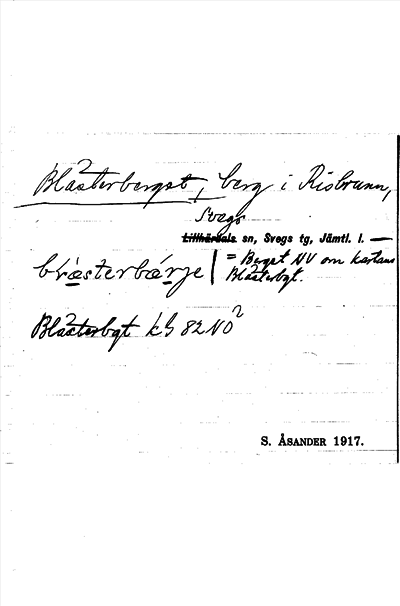 Blästerberget, berg i Risbrunn,
Svegs
Lillhärdals sn, Svegs tg, Jämtl. l. —
bræ̀sterbǽrje | = Berget NV om kartans
Blästerbgt.
Blästerbgt kbl 82 NO²
S. ÅSANDER 1917.